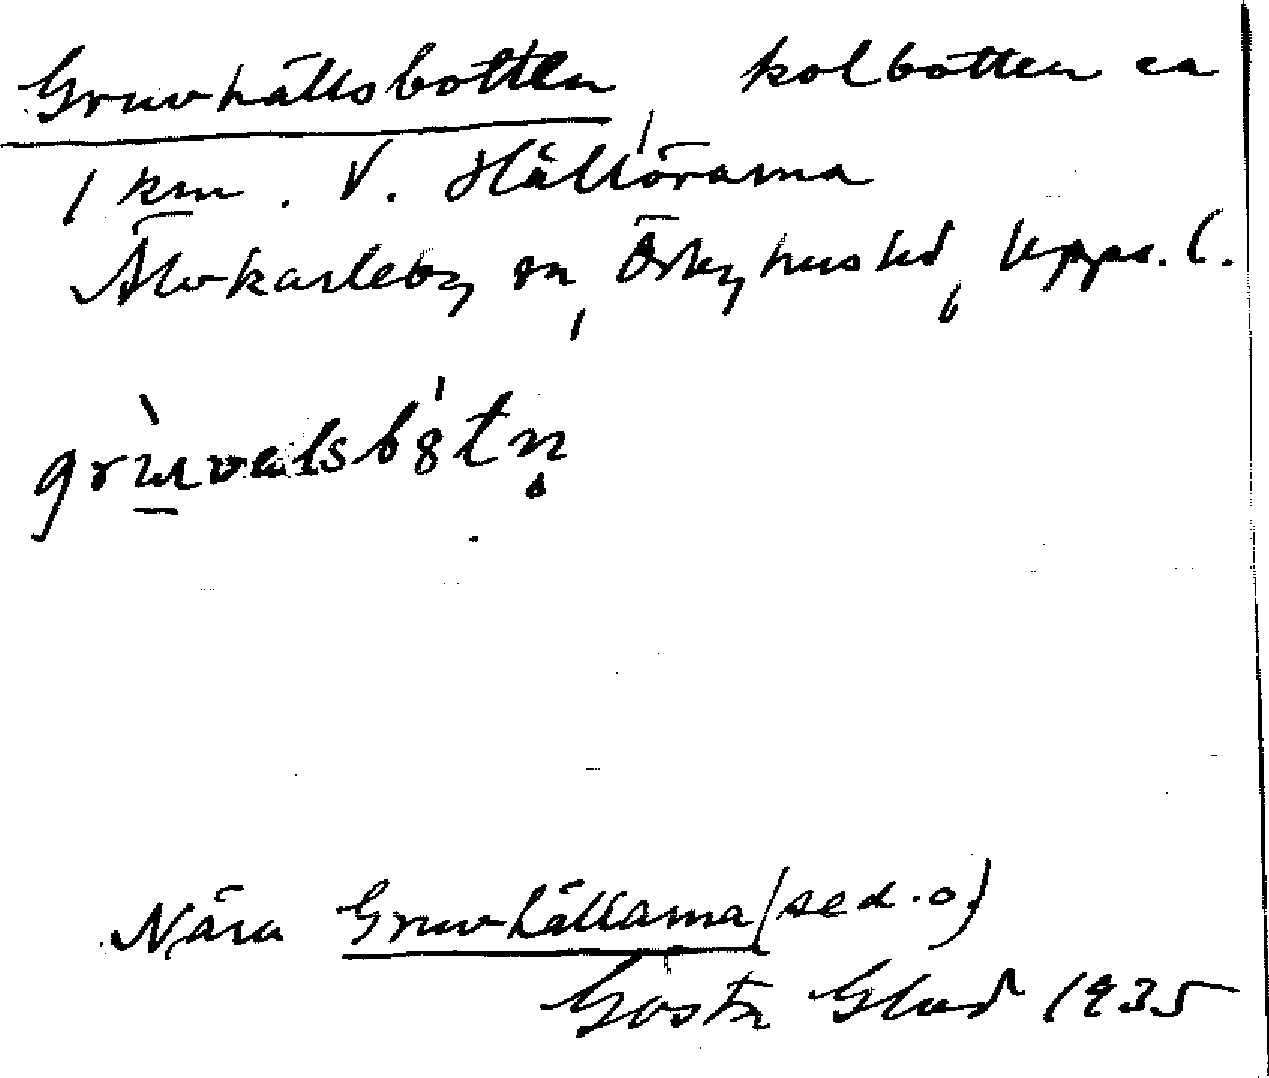 Gruvhällsbotten, kolbotten ca
1 km. V. Hällörarna
Älvkarleby sn, Örbyhus hd, Upps. l.
Nära Gruvhällarna (se d. o.)
Gösta Glad 1935